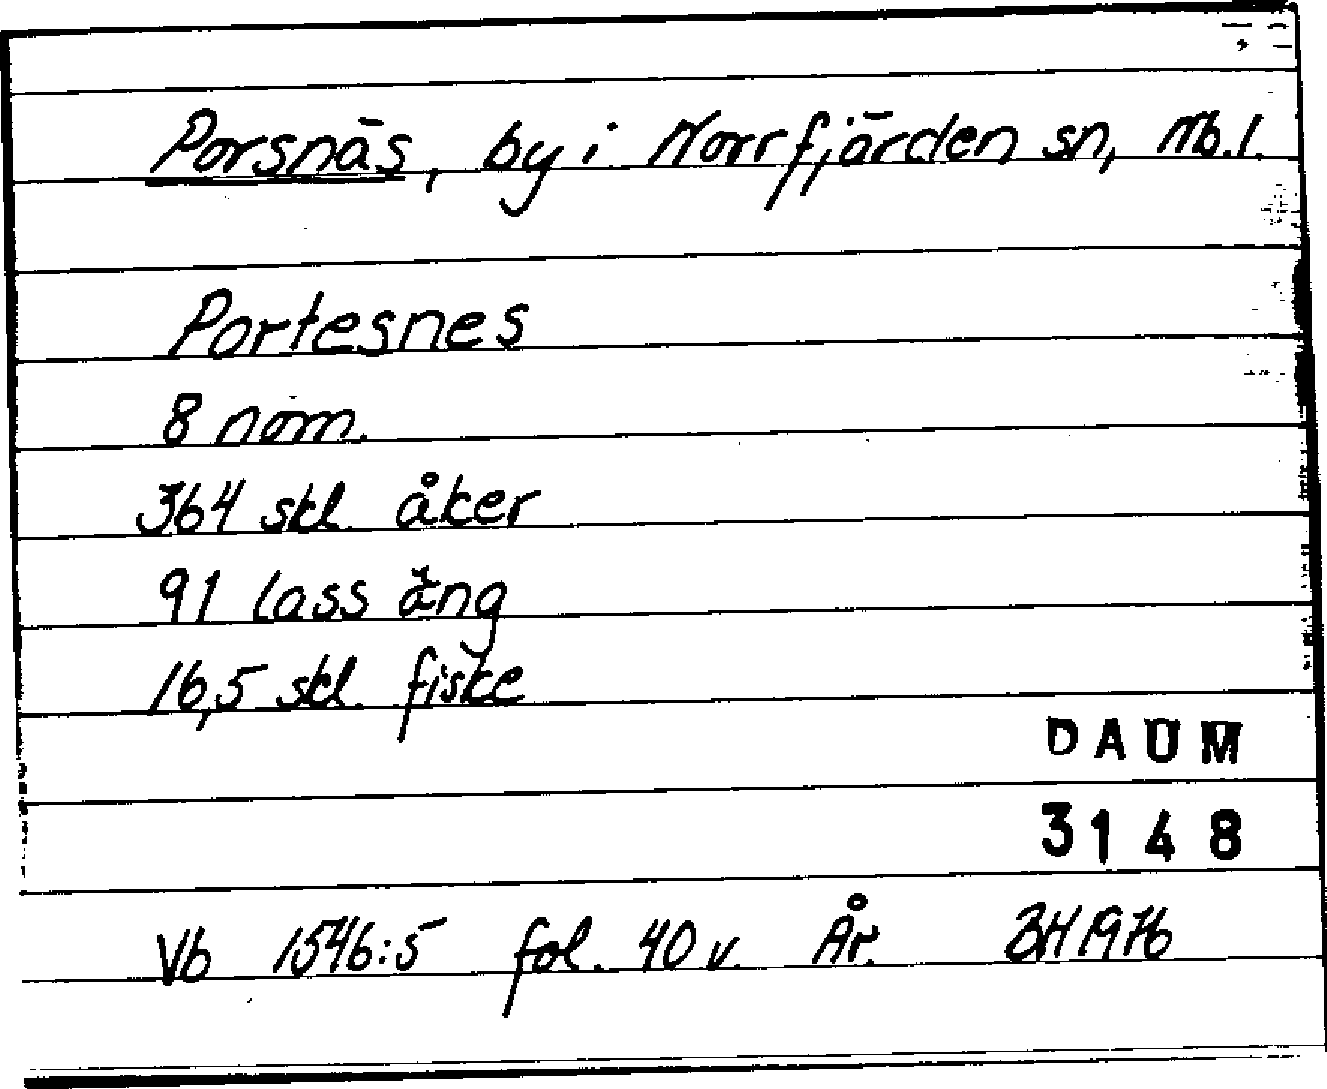 Porsnäs, by i Norrfjärden sn, Nb.l.
Portesnes
8 nam.
364 skl. åker
91 lass äng
16,5 skl. fiske
DAUM
3148
Vb 1546:5 fol. 40 v. År. BH 1976